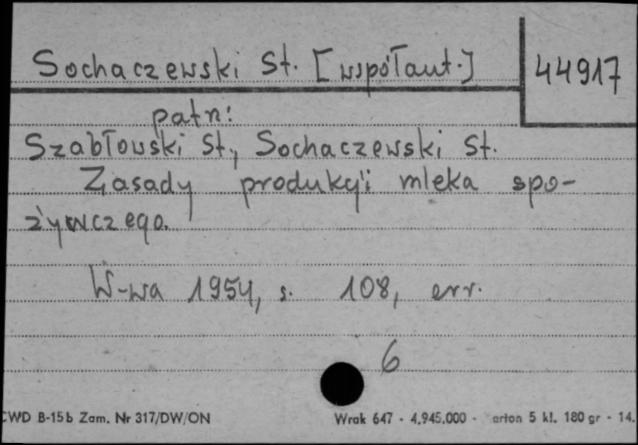 Sochaczewski St. [współaut.]
44917
patrz:
Szabłowski St., Sochaczewski St.
Zasady produkcji mleka spo-
żywczego.
W-wa 1954, s. 108, err.
6
CWD B-15b Zam. Nr 317/DW/ON Wrak 647 - 4.945.000 - arton 5 kl. 180 gr - 14.